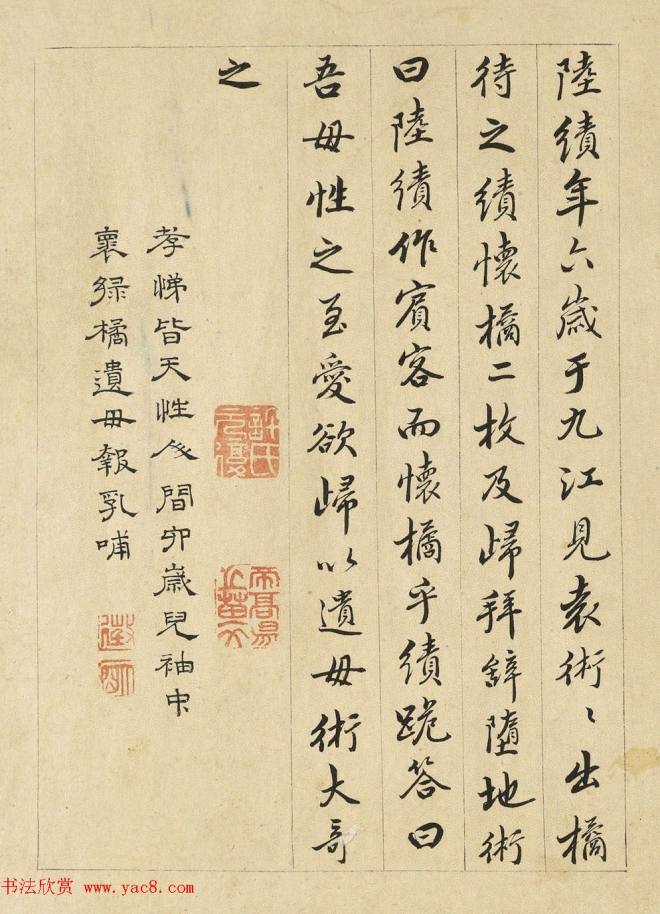 陸績年六歲于九江見袁術〻出橘
待之績懷橘二枚及歸拜辭墮地術
曰陸績作賓客而懷橘乎績跪答曰
吾母性之至愛欲歸以遺母術大奇
之
孝悌皆天性人間六歲兒袖中
懷綠橘遺母報乳哺
书法欣赏 www.yac8.com